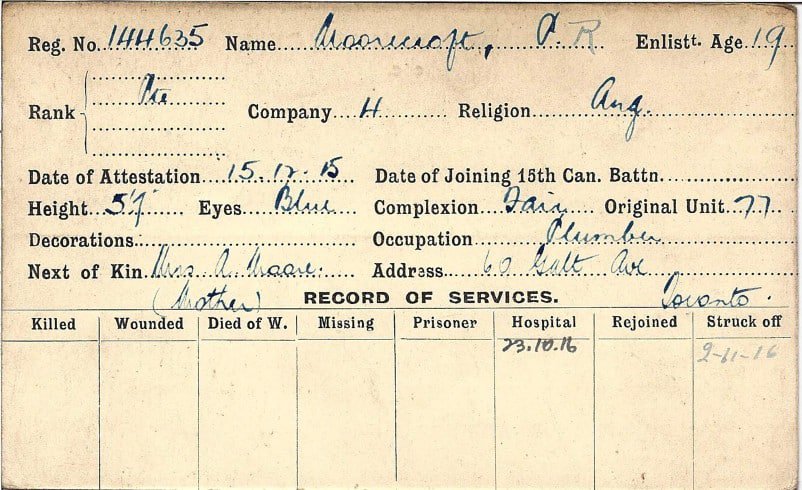 Reg. No. 144635 Name Moorecroft, P. R Enlistt. Age 19
Rank Pte Company H Religion Ang.
Date of Attestation 15.12.15 Date of Joining 15th Can. Battn.
Height 5'7 Eyes Blue Complexion Fair Original Unit 77
Decorations Occupation Plumber
Next of Kin Mrs. A. Moore Address 60 Galt Ave
(Mother) RECORD OF SERVICES. Toronto.
Killed Wounded Died of W. Missing Prisoner Hospital Rejoined Struck off
23.10.16 2-11-16